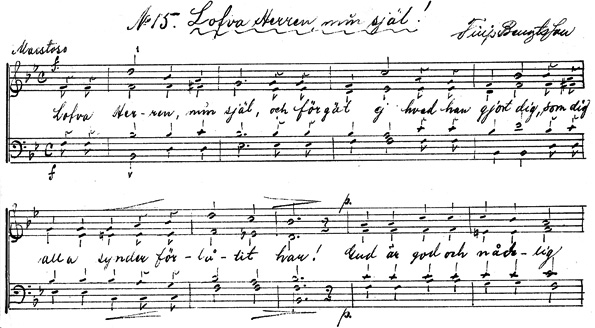 No 15. Lofva Herren, min själ!
Maestoso
f.
Lofva Her-ren, min själ, och förgät ej hvad han gjort dig, som dig
f
p.
alla synder för-lå-tit har! Gud är god och nåde-lig
p.